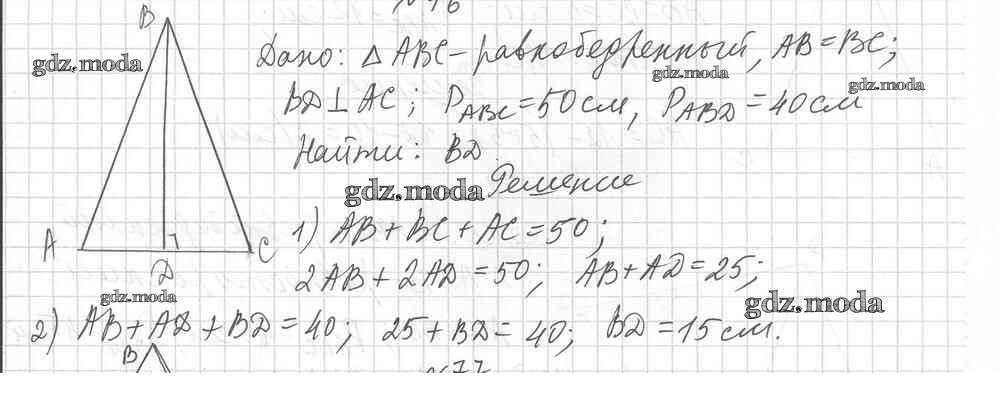 B
gdz.moda
Дано: △ ABC - равнобедренный, AB = BC;
gdz.moda
gdz.moda
BD ⊥ AC; P_ABC = 50 см, P_ABD = 40 см
Найти: BD.
gdz.moda
Решение
1) AB + BC + AC = 50;
A D C
2AB + 2AD = 50; AB + AD = 25;
gdz.moda
gdz.moda
2) AB + AD + BD = 40; 25 + BD = 40; BD = 15 см.
B